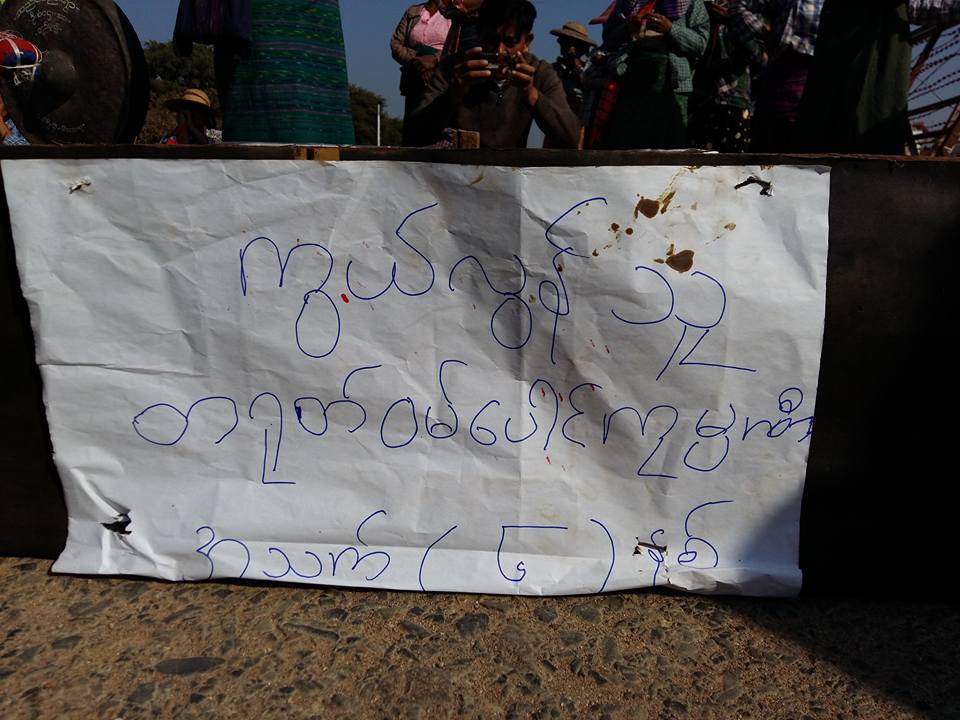 ကွယ်လွန်သူ
တရုတ်ဝမ်ပေါင်ကုမ္ပဏီ
အသက် ( ၆ ) နှစ်